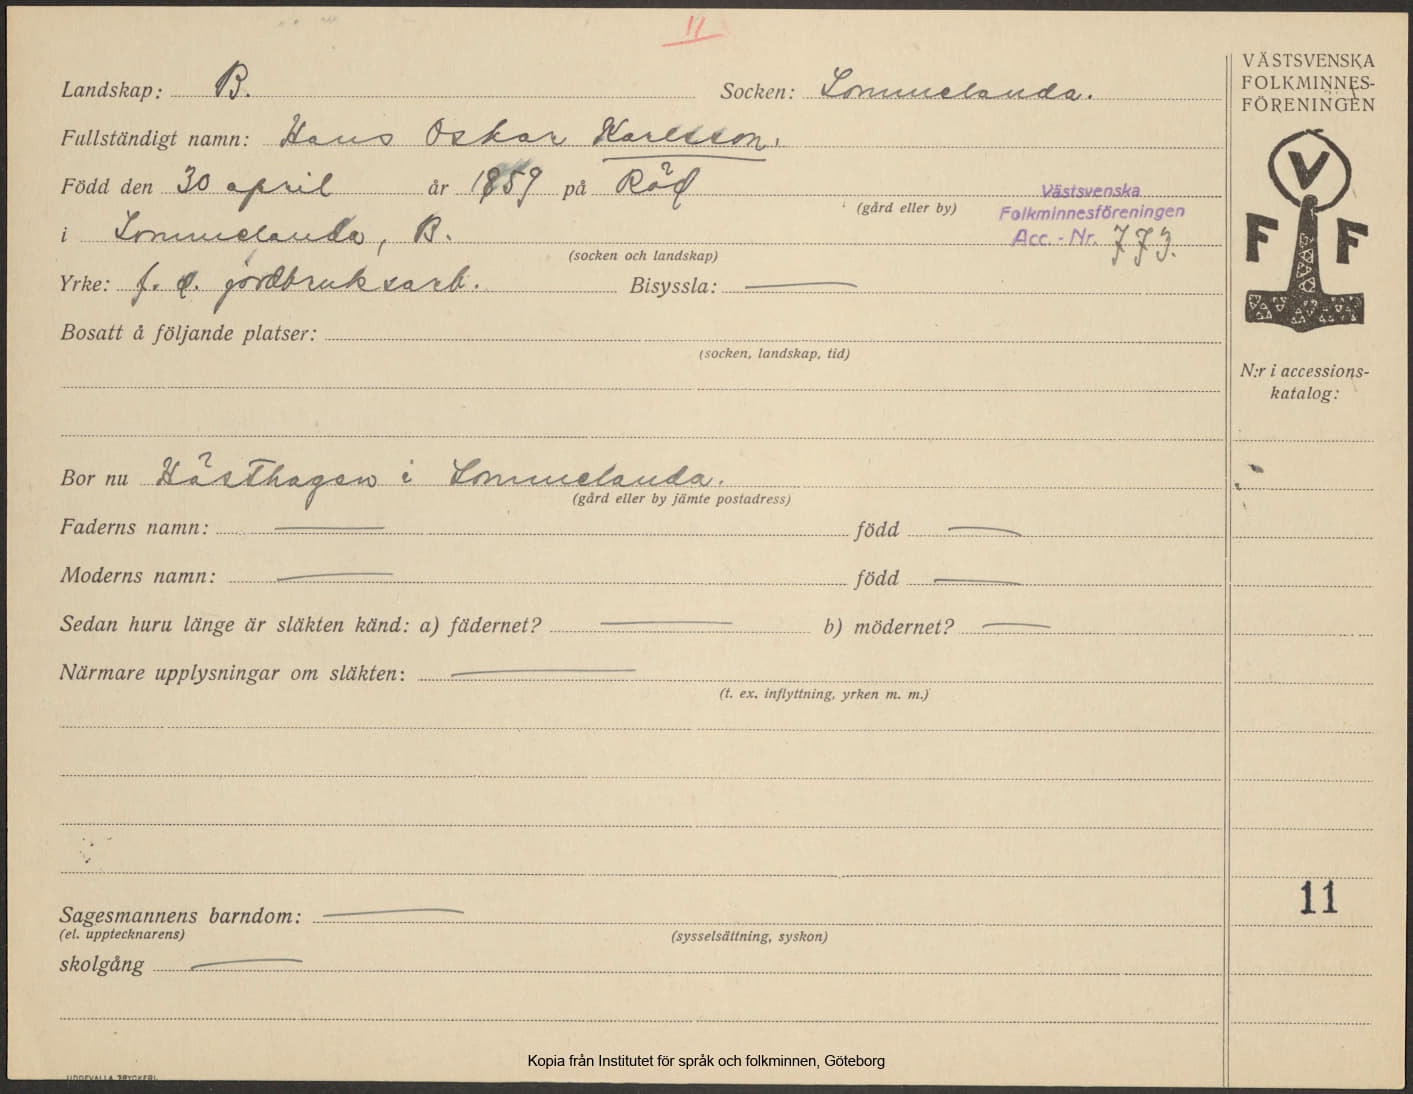 11
Landskap: B. Socken: Lommelanda.
Fullständigt namn: Hans Oskar Karlsson.
Född den 30 april år 1859 på Röd
(gård eller by)
i Lommelanda, B.
(socken och landskap)
Västsvenska
Folkminnesföreningen
Acc.-Nr. 773.
Yrke: f. d. jordbruksarb. Bisyssla: —
Bosatt å följande platser:
(socken, landskap, tid)
Bor nu Hästhagen i Lommelanda.
(gård eller by jämte postadress)
Faderns namn: — född —
Moderns namn: — född —
Sedan huru länge är släkten känd: a) fädernet? — b) mödernet? —
Närmare upplysningar om släkten: —
(t. ex. inflyttning, yrken m. m.)
Sagesmannens barndom: —
(el. upptecknarens) (sysselsättning, syskon)
skolgång —
VÄSTSVENSKA
FOLKMINNES-
FÖRENINGEN
V
F F
N:r i accessions-
katalog:
11
Kopia från Institutet för språk och folkminnen, Göteborg